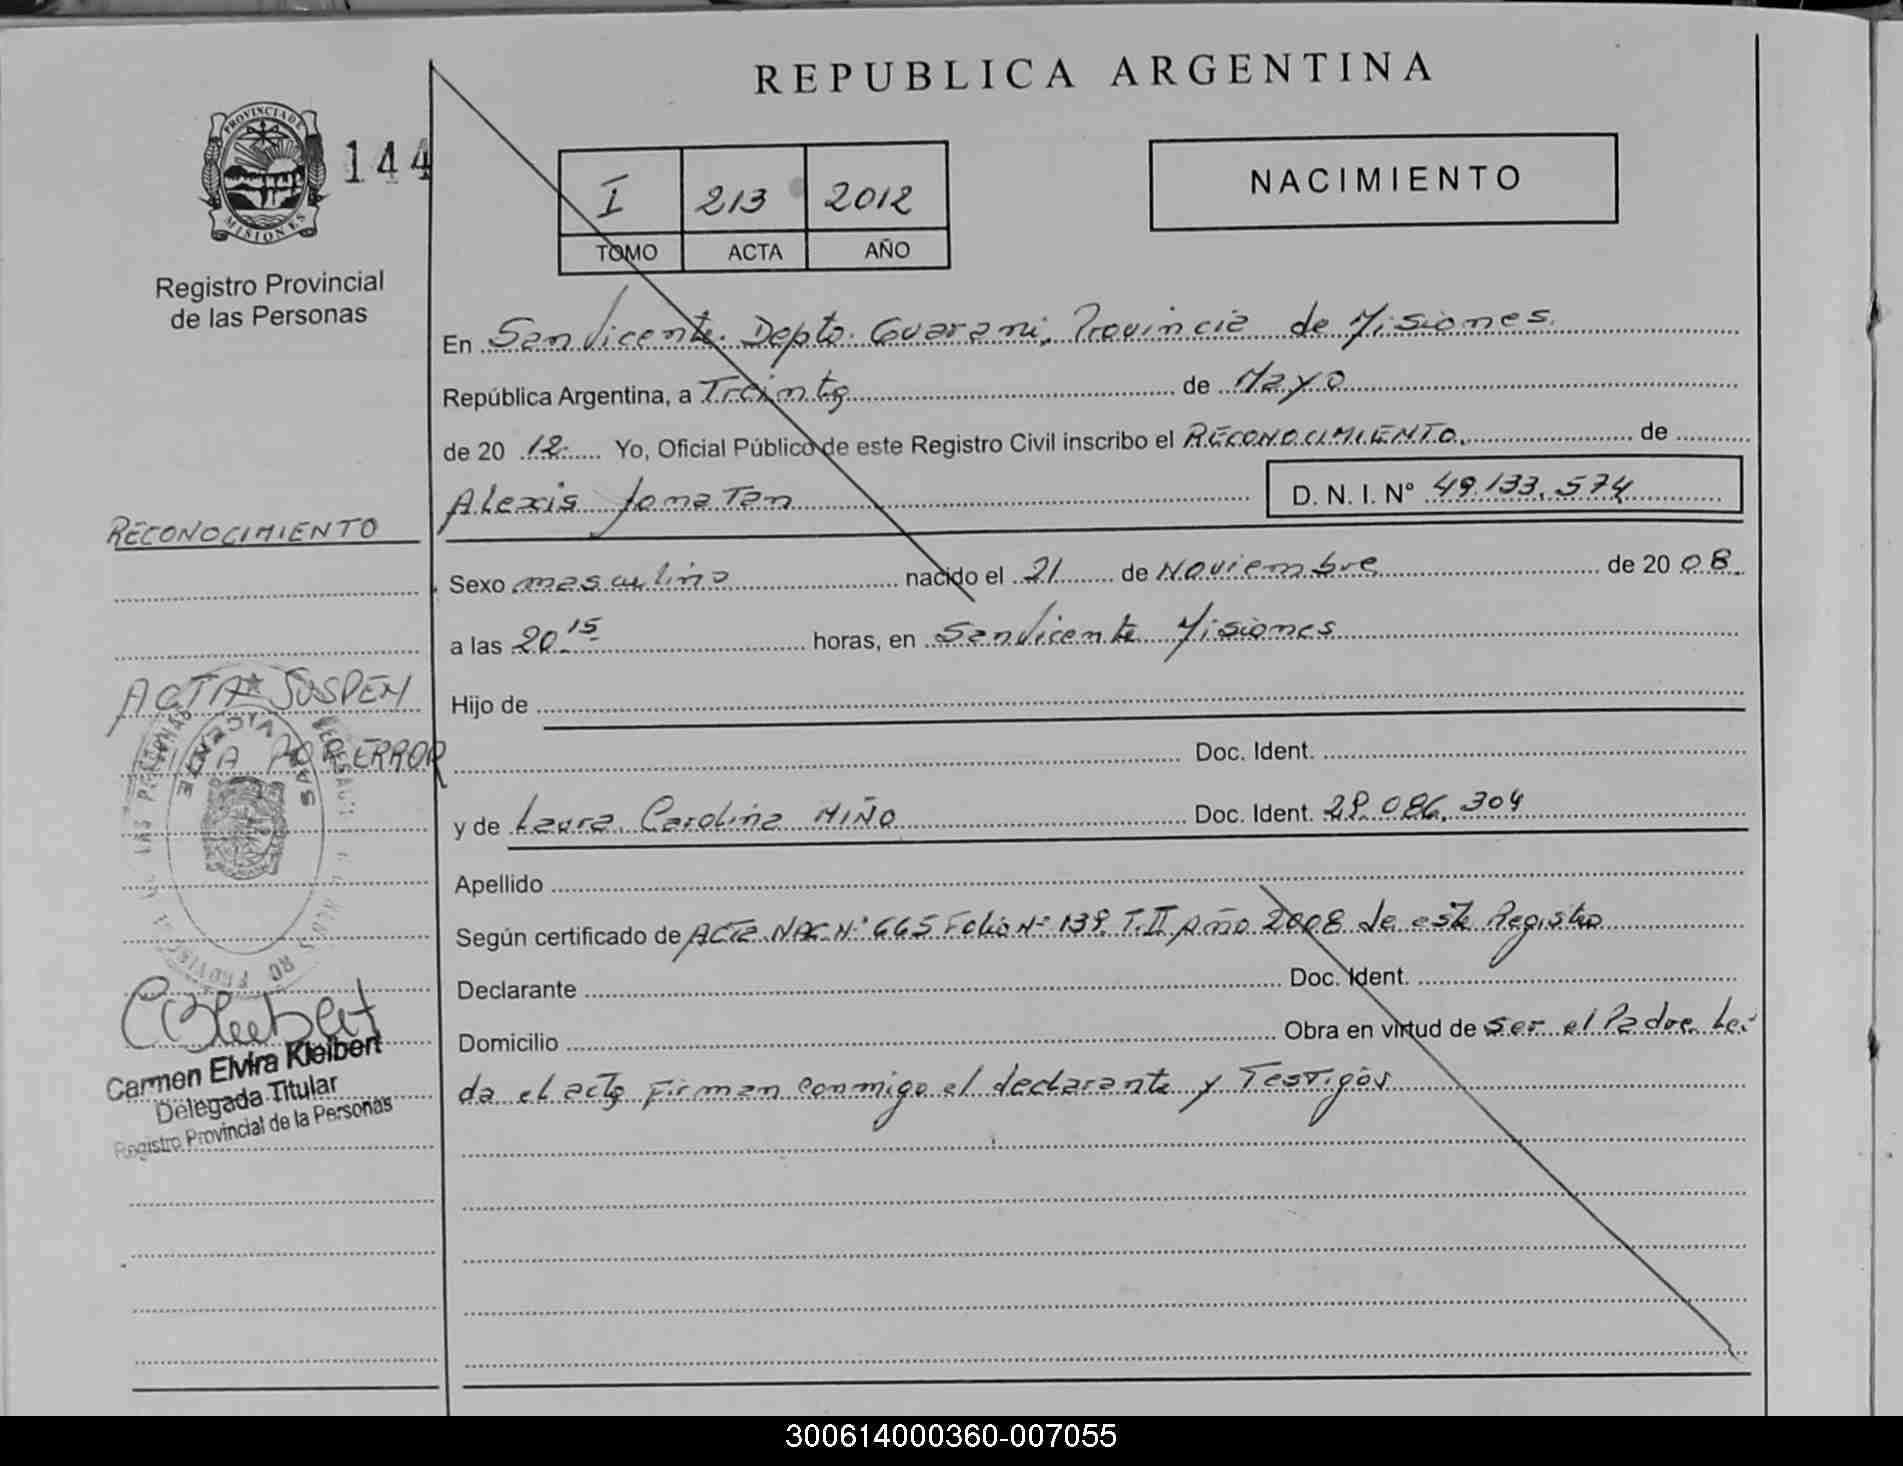 REPUBLICA ARGENTINA
PROVINCIA DE
MISIONES
144
Registro Provincial
de las Personas
I 213 2012
TOMO ACTA AÑO
NACIMIENTO
En San Vicente. Depto. Guarani, Provincia de Misiones.
República Argentina, a Treinta de Mayo
de 20 12 Yo, Oficial Público de este Registro Civil inscribo el RECONOCIMIENTO. de
Alexis Jonatan D. N. I. N° 49.133.574
RECONOCIMIENTO
Sexo masculino nacido el 21 de Noviembre de 20 08.
a las 20 15 horas, en San Vicente Misiones
Hijo de
Doc. Ident.
y de Laura Carolina NIÑO Doc. Ident. 28.086.304
Apellido
Según certificado de Acta NAC. N° 665 Folio N° 139 T. II Año 2008 de este Registro
Declarante Doc. Ident.
Domicilio Obra en virtud de ser el Padre Leí
da el acta Firman conmigo el declarante y Testigos
ACTA SUSPEN
DIDA POR ERROR
SAN VICENTE
Carmen Elvira Kleibert
Delegada Titular
Registro Provincial de la Personas
300614000360-007055